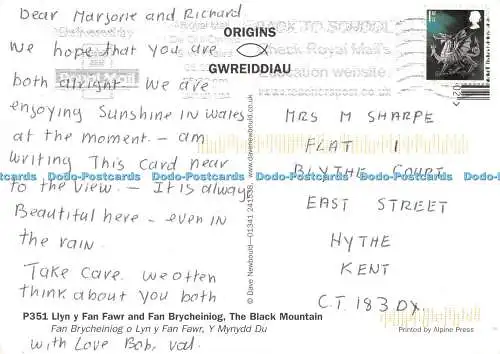 Dear Marjorie and Richard
We hope that you are
both alright. We are
enjoying Sunshine in Wales
at the moment - am
writing This Card near
to the view. - It is always
Beautiful here - even in
the rain.
Take Care. We often
think about you both
with Love Bob, Val.
P351 Llyn y Fan Fawr and Fan Brycheiniog, The Black Mountain
Fan Brycheiniog o Lyn y Fan Fawr, Y Mynydd Du
ORIGINS
GWREIDDIAU
© Dave Newbould—01341 241538, www.davenewbould.co.uk
BACK TO SCHOOL
Check Royal Mail's
Education website
www.teacherspost.co.uk
1st
MRS M SHARPE
FLAT 1
BLYTHE COURT
EAST STREET
HYTHE
KENT
C.T. 18 3 DX.
Printed by Alpine Press
Dodo-Postcards Dodo-Postcards Dodo-Postcards Dodo-Postcards